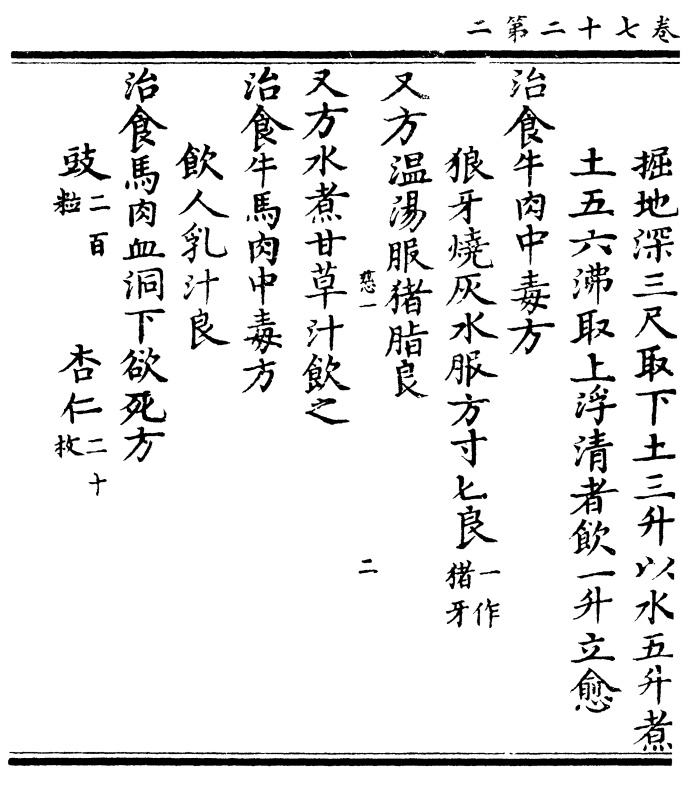 卷七十二第二
掘地深三尺取下土三升以水五升煮
土五六沸取上浮清者飲一升立愈
治食牛肉中毒方
狼牙燒灰水服方寸匕良一作猪牙
又方温湯服猪脂良
二
又方水煮甘草汁飲之
治食牛馬肉中毒方
飲人乳汁良
治食馬肉血洞下欲死方
豉二百粒 杏仁二十枚